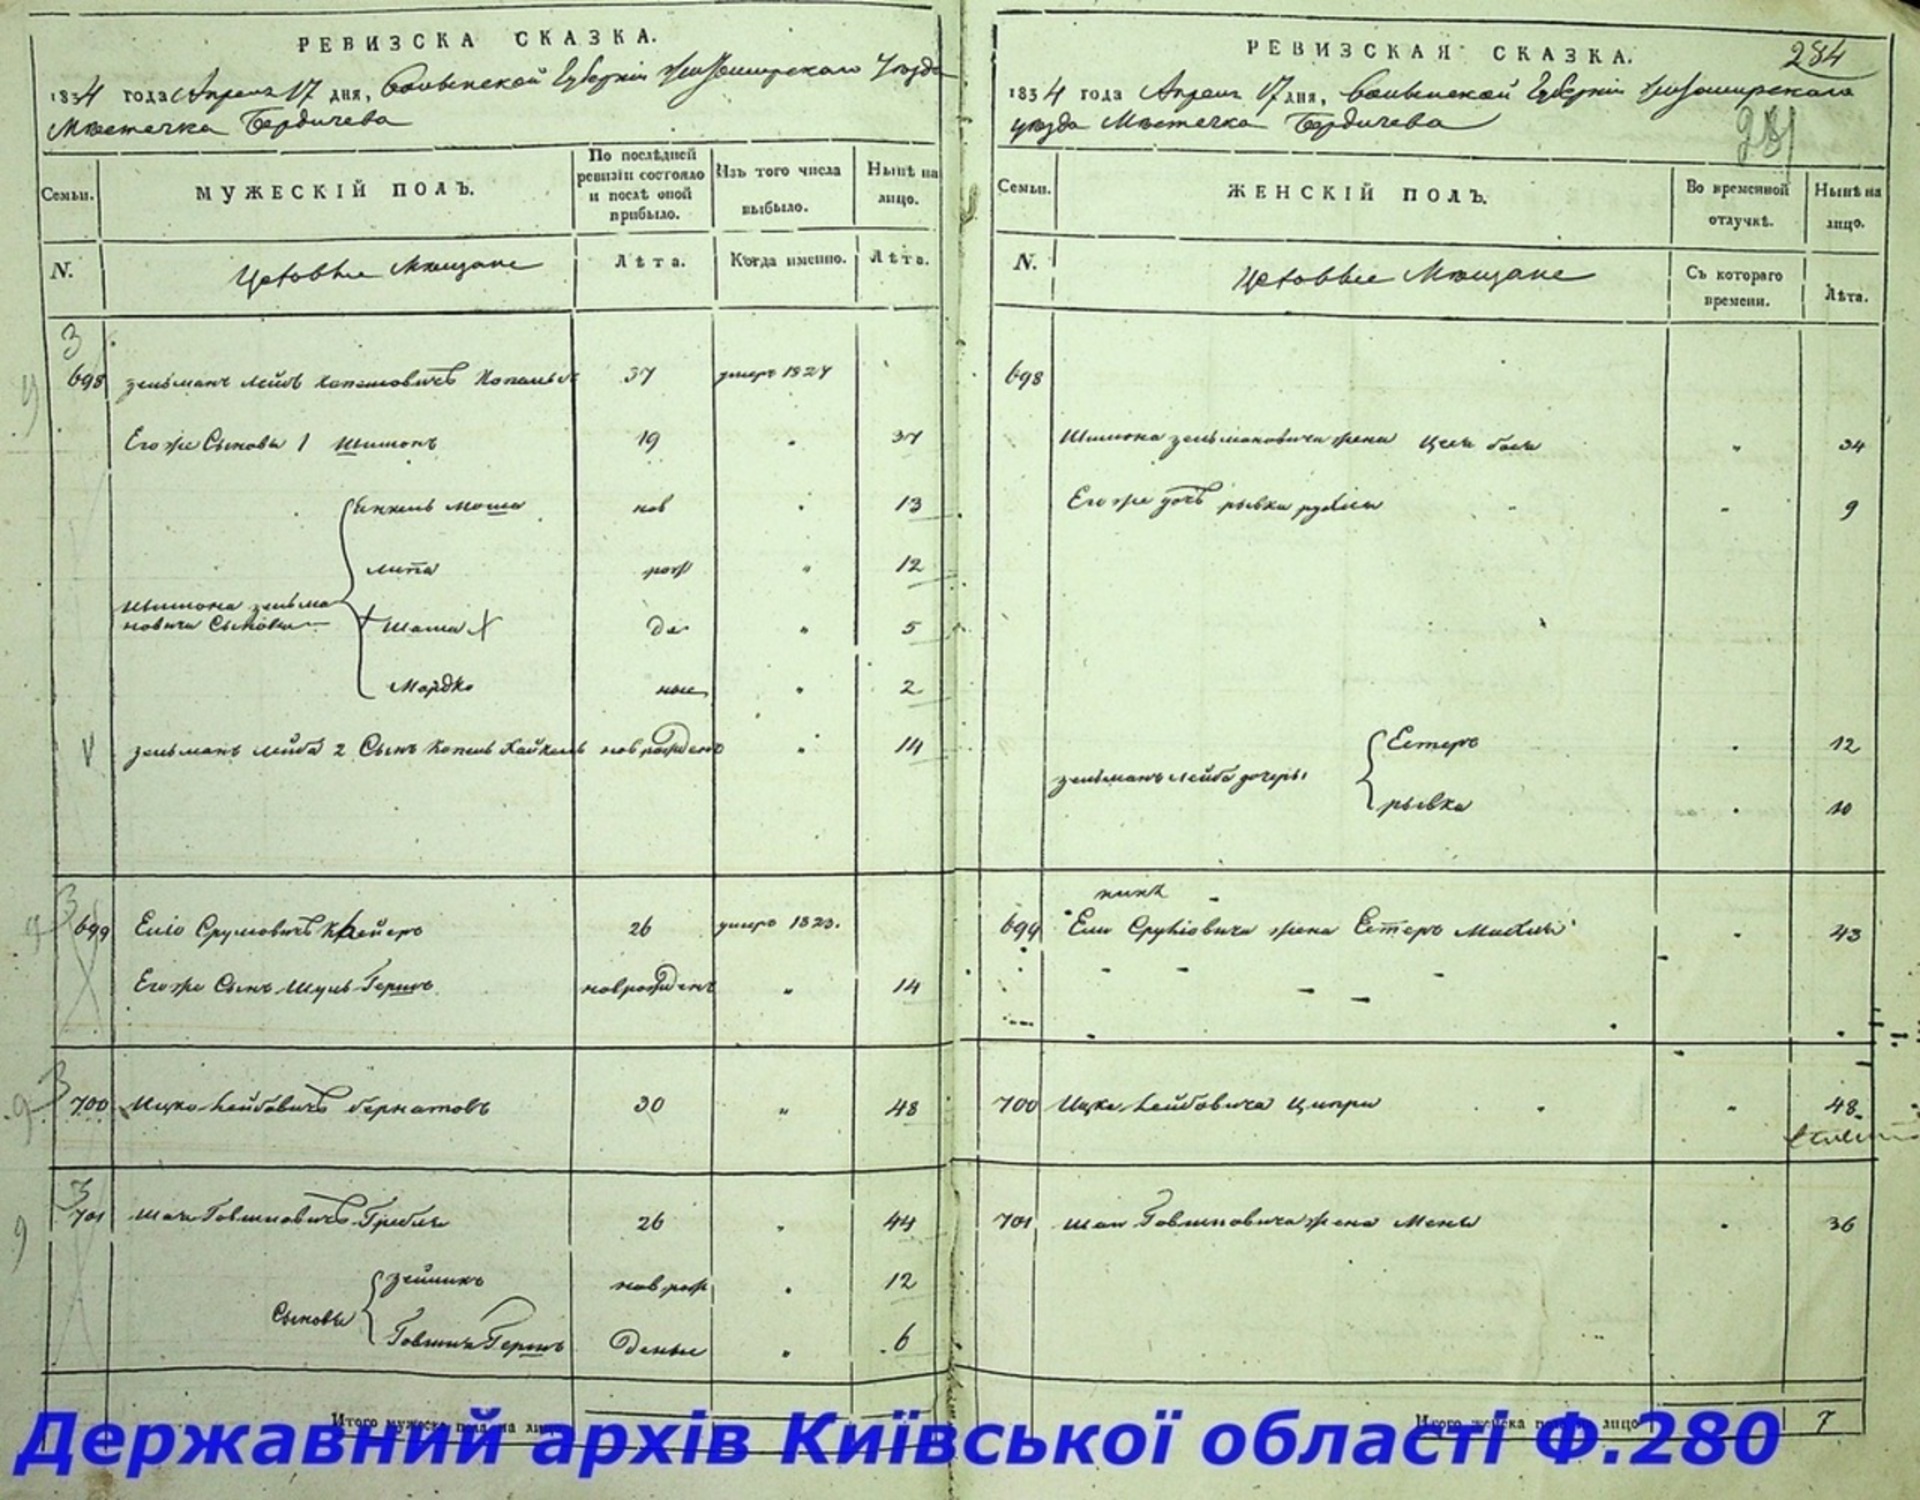 РЕВИЗСКА СКАЗКА.
1834 года Апреля 17 дня, Волынской Губернии Житомирского Уезда
Местечка Бердичева
Семьи.
МУЖЕСКІЙ ПОЛЪ.
По послѣдней ревизіи состояло и послѣ оной прибыло.
Изъ того числа выбыло.
Нынѣ на лицо.
N.
Цеховые Мещане
Лѣта.
Когда именно.
Лѣта.
3
698 Зельманъ Лейб 37 умеръ 1827
Его же Сыновья 1 Шимонъ 19 " 37
Янкель Моша нов " 13
Липа рож " 12
Шимона Зельмановича Сыновья
Шая X де " 5
Мордко ные " 2
V Зельманъ Лейба 2 Сынъ Копель Хайкель новорожденъ " 14
3
699 Елio Срулiовичъ 26 умеръ 1823.
Его же Сынъ Шуль Гершъ новорожденъ " 14
3
700 Ицко Лейбовичъ 30 " 48
3
701 26 " 44
Сыновья
Зейликъ нов рож " 12
Гершъ деные " 6
Итого мужеска пола на лицо
РЕВИЗСКАЯ СКАЗКА.
284
1834 года Апреля 17 дня, Волынской Губернии Житомирского
уезда Местечка Бердичева
281
Семьи.
ЖЕНСКІЙ ПОЛЪ.
Во временной отлучкѣ.
Нынѣ на лицо.
N.
Цеховые Мещане
Съ котораго времени.
Лѣта.
698
Шимона Зельмановича жена " 34
Его же дочь Рывка " 9
Зельманъ Лейба дочери
Естеръ " 12
Рывка " 10
699 Елiи Срулiовича жена Естеръ " 43
700 Ицка Лейбовича Ципри " 48
701 жена " 36
Итого женска пола на лицо 7
Державний архів Київської області Ф.280